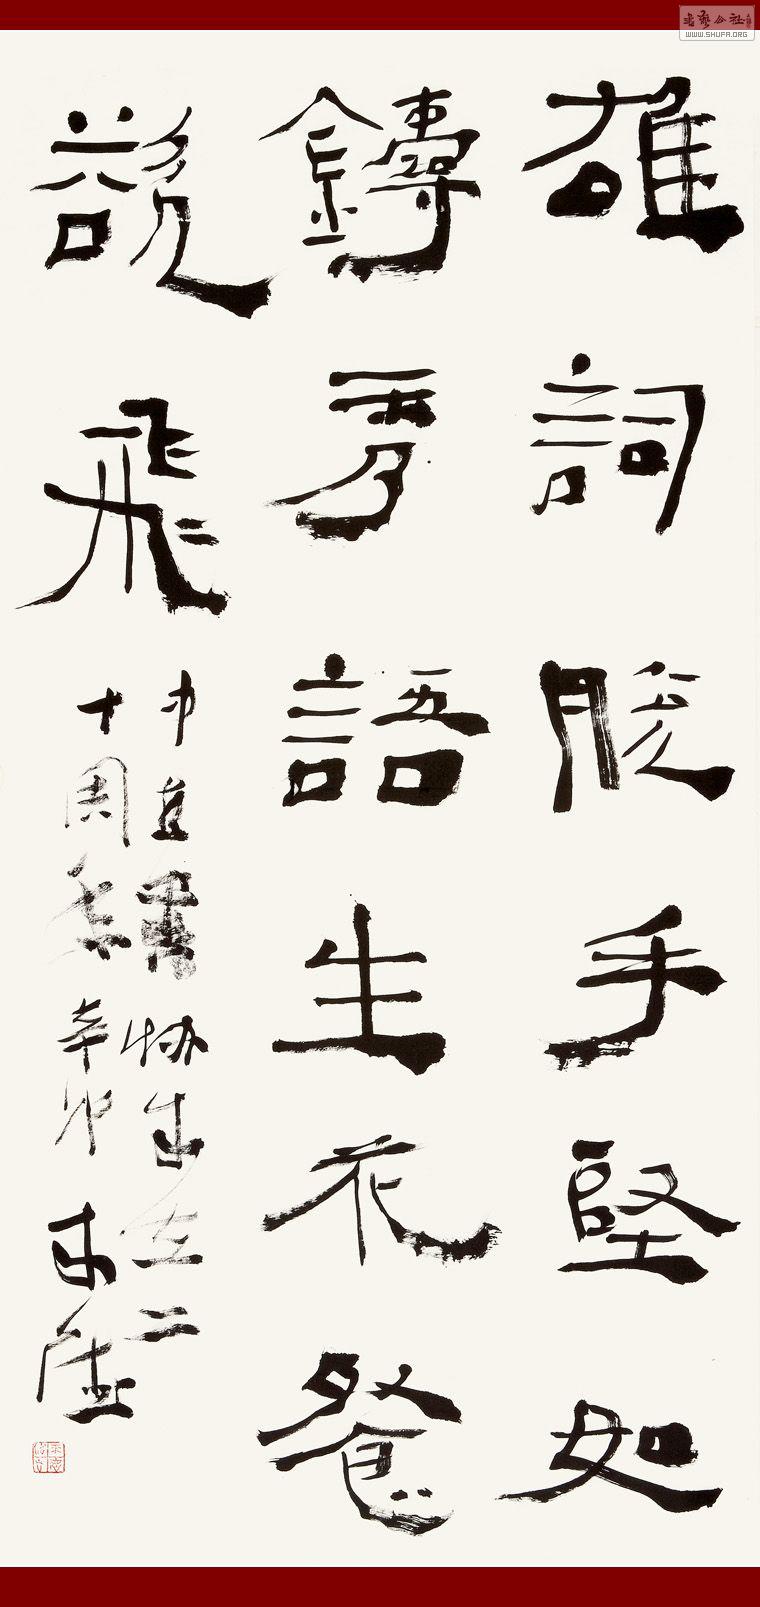 書藝公社
WWW.SHUFA.ORG
雄詞脫手堅如
鑄語生花餐
欲飛
中直書協成立二
十周年辛卯